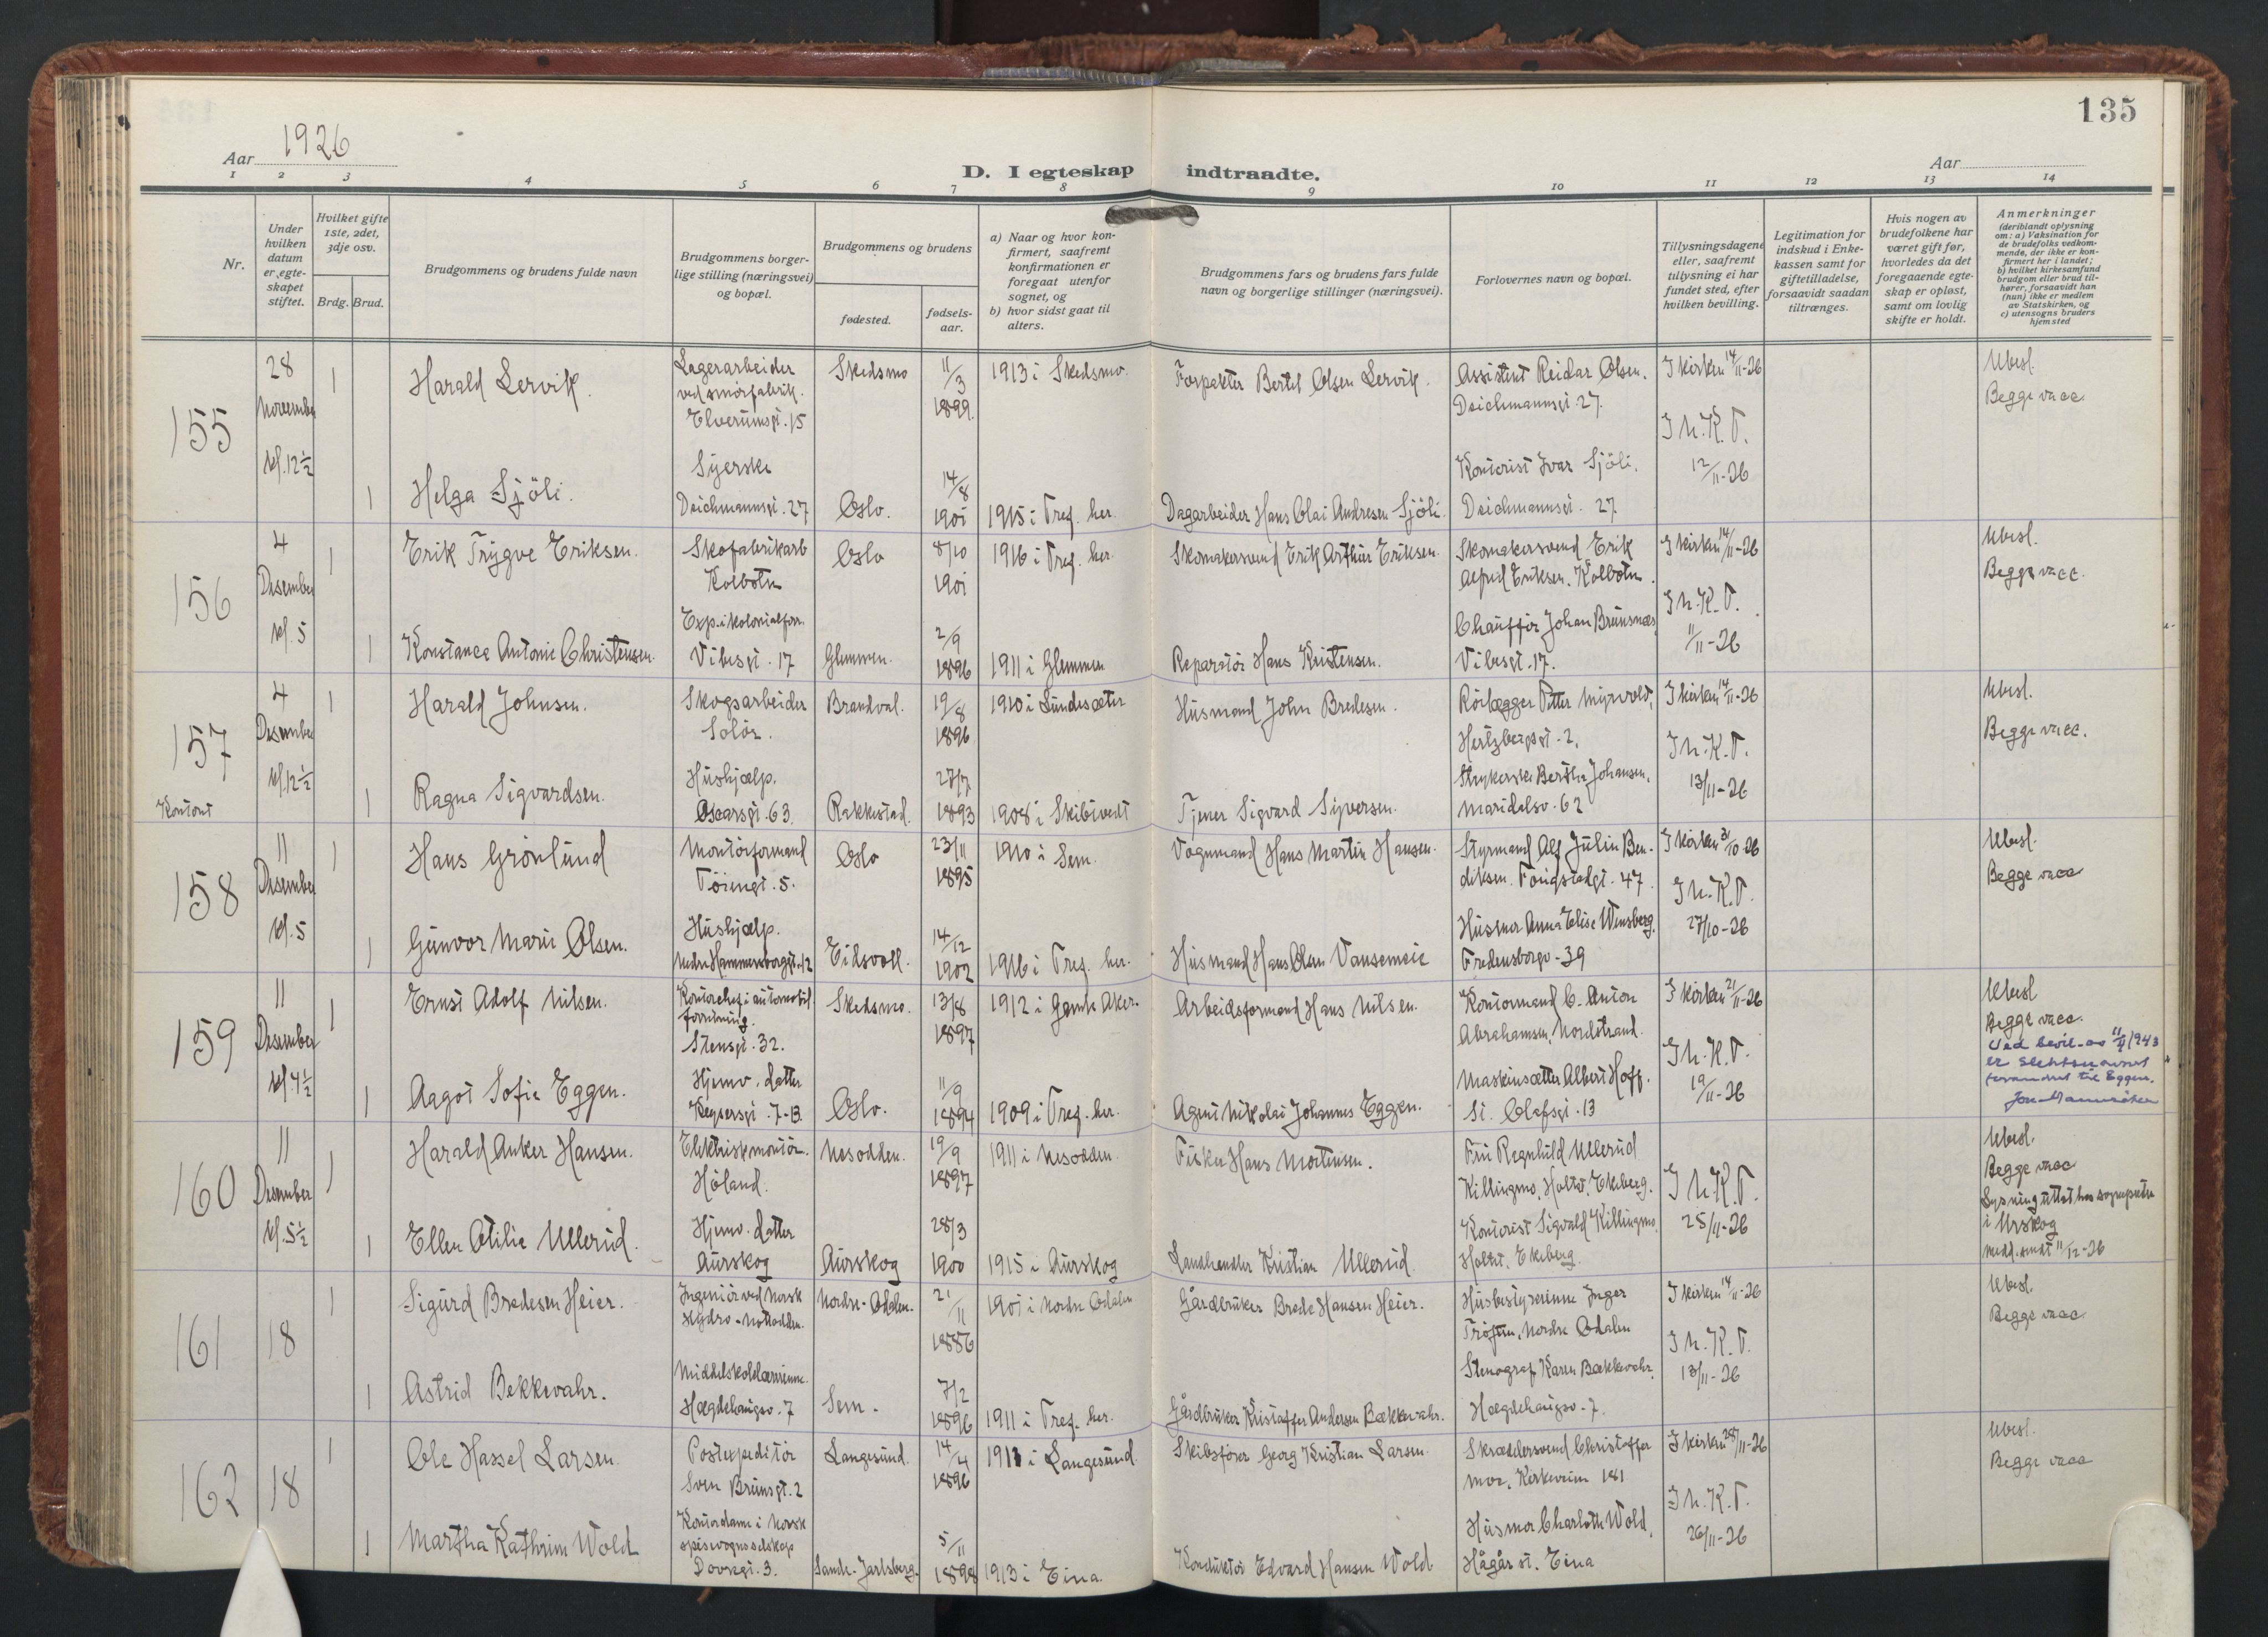 135
Aar 1926
Aar
D. I egteskap indtraadte.
1 2 3 4 5 6 7 8 9 10 11 12 13 14
Nr.
Under hvilken datum er egte-skapet stiftet.
Hvilket gifte 1ste, 2det, 3dje osv.
Brdg. Brud.
Brudgommens og brudens fulde navn
Brudgommens borger-lige stilling (næringsvei) og bopæl.
Brudgommens og brudens
fødested.
fødsels-aar.
a) Naar og hvor kon-firmert, saafremt konfirmationen er foregaat utenfor sognet, og
b) hvor sidst gaat til alters.
Brudgommens fars og brudens fars fulde navn og borgerlige stillinger (næringsvei).
Forlovernes navn og bopæl.
Tillysningsdagene eller, saafremt tillysning ei har fundet sted, efter hvilken bevilling.
Legitimation for indskud i Enke-kassen samt for giftetilladelse, forsaavidt saadan tiltrænges.
Hvis nogen av brudefolkene har været gift før, hvorledes da det foregaaende egte-skap er opløst, samt om lovlig skifte er holdt.
Anmerkninger (deriblandt oplysning om: a) Vaksination for de brudefolks vedkom-mende, der ikke er kon-firmert her i landet; b) hvilket kirkesamfund brudgom eller brud til-hører, forsaavidt han (hun) ikke er medlem av Statskirken, og c) utensogns bruders hjemsted
155
28 November kl. 12½
1 Harald Lervik. Lagerarbeider ved smörfabrik. Elverumsgt. 15 Skedsmo 11/3 1899. 1913 i Skedsmo. Forpakter Bertel Olsen Lervik. Assistent Reidar Olsen. Deichmannsgt. 27. I kirken 14/11-26 Ubesl. Begge vacc.
1 Helga Sjöli. Syerske Deichmannsgt. 27 Oslo. 14/8 1901 1915 i Tref. her. Dagarbeider Hans Olai Andresen Sjöli. Kontorist Ivar Sjöli. Deichmannsgt. 27. I N.K.T. 12/11-26
156
4 Desember kl. 5
1 Erik Trygve Eriksen. Skofabrikarb Kolbotn Oslo 8/10 1901 1916 i Tref. her. Skomakersvend Erik Arthur Eriksen. Skomakersvend Erik Alfred Eriksen. Kolbotn. I kirken 14/11-26 Ubesl. Begge vacc.
1 Konstance Antonie Christensen. Exp. i kolonialforr. Vibesgt. 17 Glemmen. 2/9 1896 1911 i Glemmen Reparatör Hans Kristensen. Chaufför Johan Brunsnæs, Vibesgt. 17. I N.K.T. 11/11-26
157
4 Desember kl. 12½
Kontort
1 Harald Johnsen. Skogsarbeider Solör. Brandval. 19/8 1896 1910 i Lundesæter Husmand John Bredesen. Rörlægger Petter Myrvold, Hertzbergsgt. 2. I kirken 14/11-26 Ubesl. Begge vacc.
1 Ragna Sigvardsen. Hushjælp. Oscarsgt. 63. Rakkestad. 27/7 1893 1908 i Skibtvedt Tjener Sigvard Syversen. Strykerske Bertha Johansen. Maridalsv. 62 I N.K.T. 13/11-26
158
11 Desember kl. 5
1 Hans Grönlund Montörformand Töiengt. 5. Oslo 23/11 1895 1910 i Sem. Vognmand Hans Martin Hansen. Styrmand Alf Julin Ben-diksen. Fougstadgt. 47. I kirken 31/10-26 Ubesl. Begge vacc
1 Gunvor Marie Olsen. Hushjælp. Nedre Hammersborggt. 12 Eidsvoll. 14/12 1902 1916 i Tref. her. Husmand Hans Olsen Husmor Anna Elise Winsberg. Fredensborgv. 39 I N.K.T. 27/10-26
159
11 Desember kl 4½
1 Ernst Adolf Nilsen. Kontorchef i automobil-forretning. Stensgt. 32. Skedsmo. 13/8 1897 1912 i Gamle Aker. Arbeidsformand Hans Nilsen. Kontormand C. Anton Abrahamsen, Nordstrand. I kirken 21/11-26 Ubesl Begge vacc.
Ved bevil. av 11/4 1943 er slektsnavnet forandret til Eggen.
1 Aagot Sofie Eggen. Hjemv. datter Keysersgt. 7-B Oslo. 11/9 1894 1909 i Tref. her. Agent Nikolai Johannes Eggen. Maskinsætter Albert Hoff. St. Olafsgt. 13 I N.K.T. 19/11-26
160
11 Desember kl. 5½
1 Harald Anker Hansen. Elektrisk montör. Höland. Nesodden. 19/9 1897 1911 i Nesodden. Fisker Hans Mortensen. Fru Regnhild Ullerud Killingmo, Holtet, Ekeberg. I N.K.T. 25/11-26 Ubesl. Begge vacc Lysning uttat hos sogneprten i Urskog medd. sendt 11/12-26
1 Ellen Otilie Ullerud. Hjemv. datter Aurskog Aurskog 28/3 1900 1915 i Aurskog Landhandler Kristian Ullerud. Kontorist Sigvald Killingmo, Holtet. Ekeberg.
161
18
1 Sigurd Bredesen Heier. Ingeniör ved Norsk Hydro - Notodden. Nordre-Odalen. 21/11 1886 1901 i Nordre Odalen Gårdbruker Brede Hansen Heier. Husbestyrerinne Inger Nordre Odalen I kirken 14/11-26 Ubesl. Begge vacc
1 Astrid Bekkevahr. Middelskolelærerinne. Hægdehaugsv. 7 Sem. 7/2 1896 1911 i Tref. her. Gårdbruker Kristaffer Andersen Bækkevahr. Stenograf Karen Bækkevahr. Hægdehaugsv. 7. I N.K.T. 13/11-26
162
18
1 Ole Hassel Larsen. Postexpeditör Sven Brunsgt. 2 Langesund. 14/4 1896 1911 i Langesund. Skibsförer Georg Kristian Larsen. Skræddersvend Christoffer Moe, Kirkeveien 181 I kirken 28/11-26 Ubesl. Begge vacc
1 Martha Kathrine Wold Kontordame i Norsk spisevognsselskap Dovregt. 3. Sande-Jarlsberg. 5/11 1898 1913 i Eina. Konduktör Edvard Hansen Wold Husmor Charlotte Wold, Hågår st. Eina I N.K.T. 26/11-26